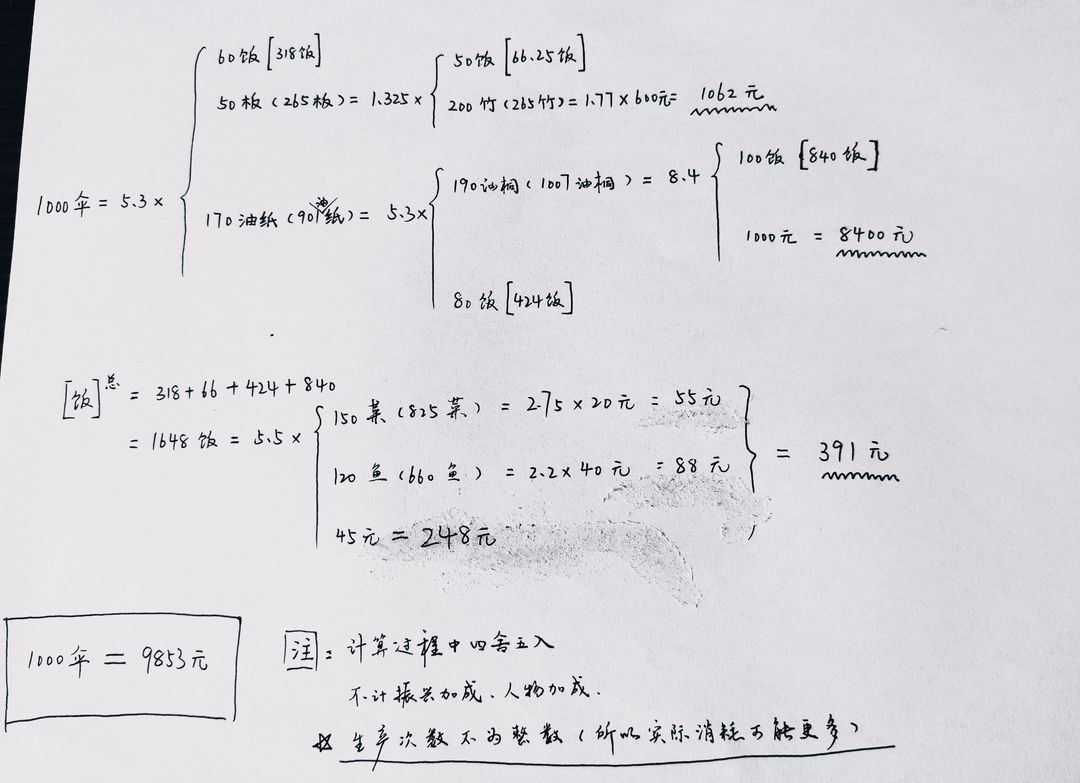 60饭[318饭]
50板(265板)=1.325×
50饭[66.25饭]
200竹(265竹)=1.77×600元=1062元
1000伞=5.3×
170油纸(901油纸)=5.3×
190油桐(1007油桐)=8.4
100饭[840饭]
1000元=8400元
80饭[424饭]
[饭]总=318+66+424+840
=1648饭=5.5×
150菜(825菜)=2.75×20元=55元
120鱼(660鱼)=2.2×40元=88元
45元=248元
=391元
1000伞=9853元
注:计算过程中四舍五入
不计振兴加成、人物加成.
☆生产次数不为整数(所以实际消耗可能更多)